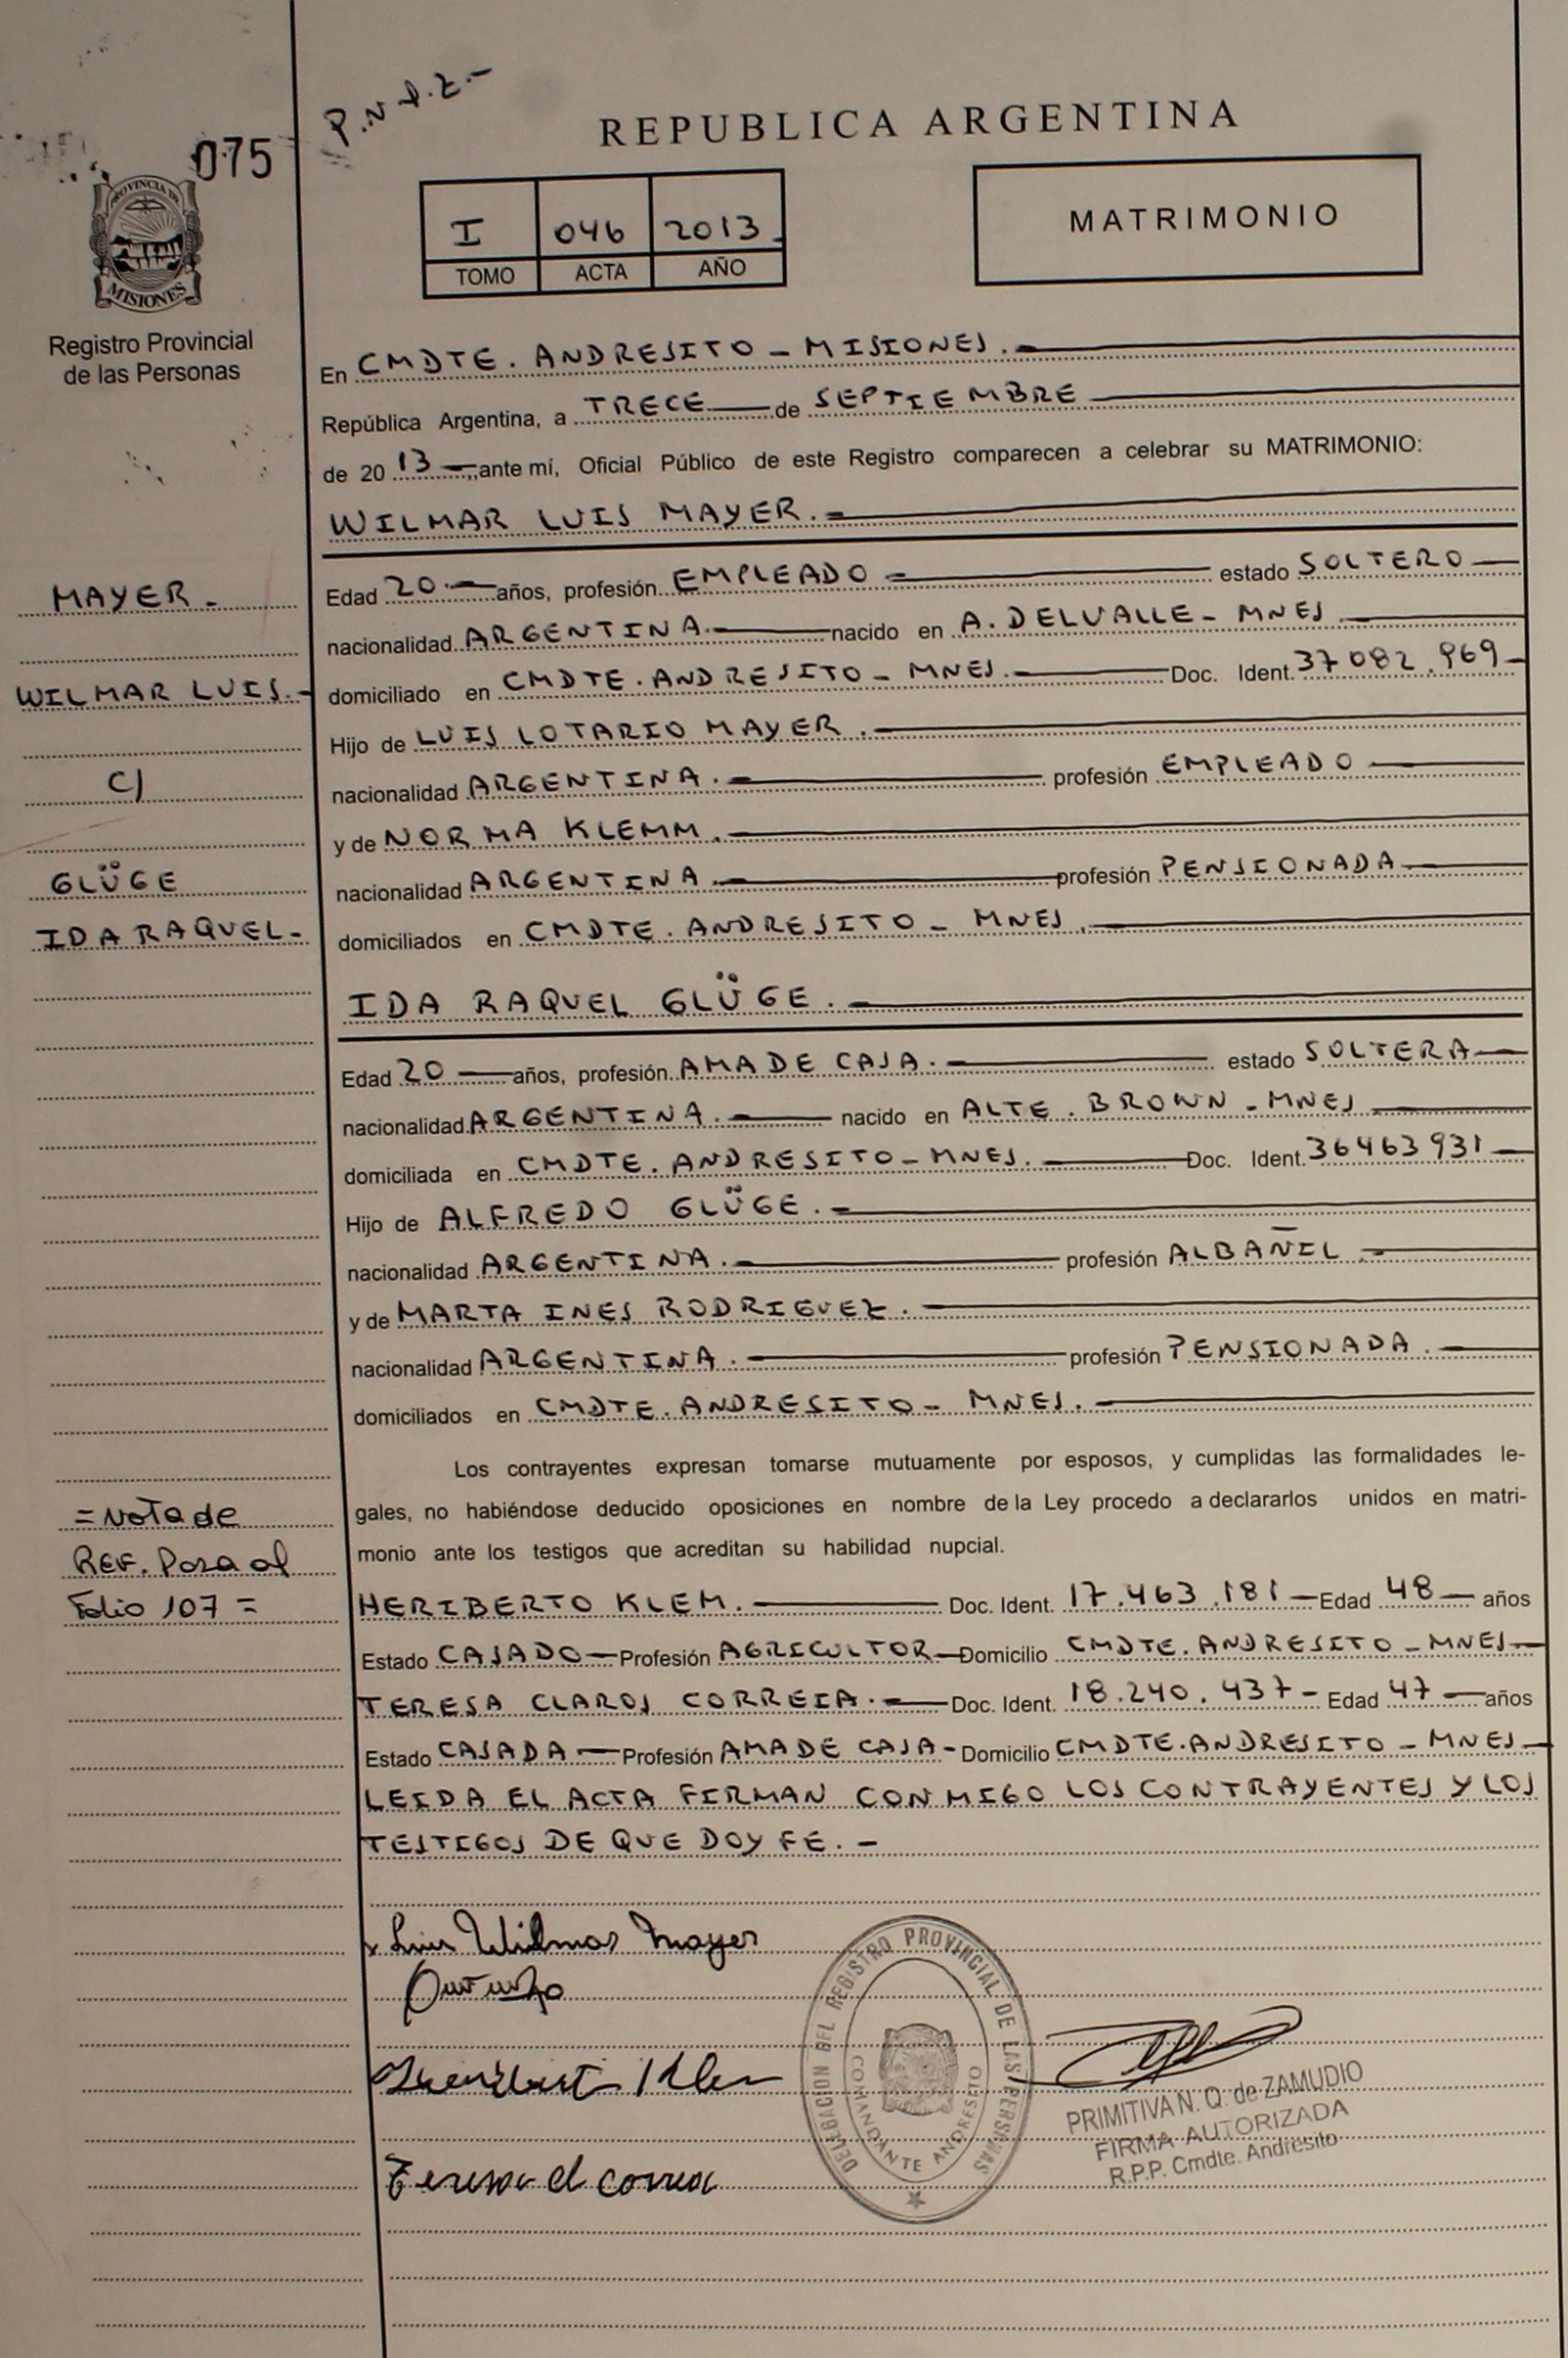 P.N.I.Z.-
075
REPUBLICA ARGENTINA
PROVINCIA DE
MISIONES
Registro Provincial
de las Personas
I 046 2013
TOMO ACTA AÑO
MATRIMONIO
En CMDTE. ANDRESITO - MISIONES.
República Argentina, a TRECE de SEPTIEMBRE
de 20 13 ante mí, Oficial Público de este Registro comparecen a celebrar su MATRIMONIO:
WILMAR LUIS MAYER.
MAYER.
WILMAR LUIS.
C/
GLÜGE
IDA RAQUEL-
Edad 20 años, profesión EMPLEADO estado SOLTERO
nacionalidad ARGENTINA. nacido en A. DELVALLE - MNES
domiciliado en CMDTE. ANDRESITO - MNES. Doc. Ident. 37082.969
Hijo de LUIS LOTARIO MAYER.
nacionalidad ARGENTINA. profesión EMPLEADO
y de NORMA KLEMM.
nacionalidad ARGENTINA. profesión PENSIONADA
domiciliados en CMDTE. ANDRESITO - MNES.
IDA RAQUEL GLÜGE.
Edad 20 años, profesión AMA DE CASA. estado SOLTERA
nacionalidad ARGENTINA. nacido en ALTE. BROWN - MNES
domiciliada en CMDTE. ANDRESITO - MNES. Doc. Ident. 36463931
Hijo de ALFREDO GLÜGE.
nacionalidad ARGENTINA. profesión ALBAÑIL.
y de MARTA INES RODRIGUEZ.
nacionalidad ARGENTINA. profesión PENSIONADA.
domiciliados en CMDTE. ANDRESITO - MNES.
Los contrayentes expresan tomarse mutuamente por esposos, y cumplidas las formalidades le-
gales, no habiéndose deducido oposiciones en nombre de la Ley procedo a declararlos unidos en matri-
monio ante los testigos que acreditan su habilidad nupcial.
= Nota de
REF. Pasa al
Folio 107 =
HERIBERTO KLEM. Doc. Ident. 17.463.181 Edad 48 años
Estado CASADO Profesión AGRICULTOR Domicilio CMDTE. ANDRESITO - MNES
TERESA CLAROS CORREIA. Doc. Ident. 18.240.437 Edad 47 años
Estado CASADA Profesión AMA DE CASA - Domicilio CMDTE. ANDRESITO - MNES
LEIDA EL ACTA FIRMAN CONMIGO LOS CONTRAYENTES Y LOS
TESTIGOS DE QUE DOY FE. -
Luis Wilmar Mayer
Teresa cl correa
DELEGACION DEL REGISTRO PROVINCIAL DE LAS PERSONAS
COMANDANTE ANDRESITO
PRIMITIVA N. Q. de ZAMUDIO
FIRMA AUTORIZADA
R.P.P. Cmdte. Andresito